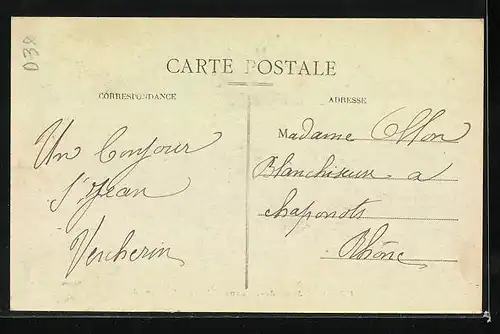 D38
CARTE POSTALE
CORRESPONDANCE
ADRESSE
Un Bonjour
St Jean
Vercherin
Madame Ollion
Blanchisseur a
chaponots
Rhône